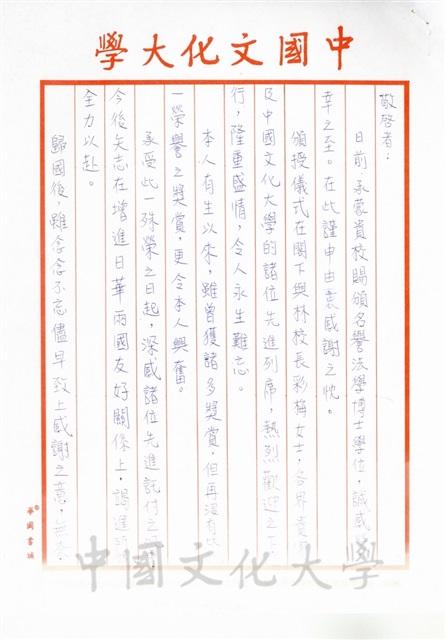 中國文化大學
敬啓者：
日前承蒙貴校賜頒名譽法學博士學位，誠感
幸之至。在此謹申由衷感謝之忱。
頒授儀式在閣下與林校長彩梅女士，各界貴
及中國文化大學的諸位先進列席，熱烈歡迎之下
行，隆重盛情，令人永生難忘。
本人有生以來，雖曾獲諸多獎賞，但再沒有
一榮譽之獎賞，更令本人興奮。
承受此一殊榮之日起，深感諸位先進託付之
今後矢志在增進日華兩國友好關係上，竭進
全力以赴。
歸國後，雖念念不忘儘早致上感謝之意，無奈
華岡書城
中國文化大學